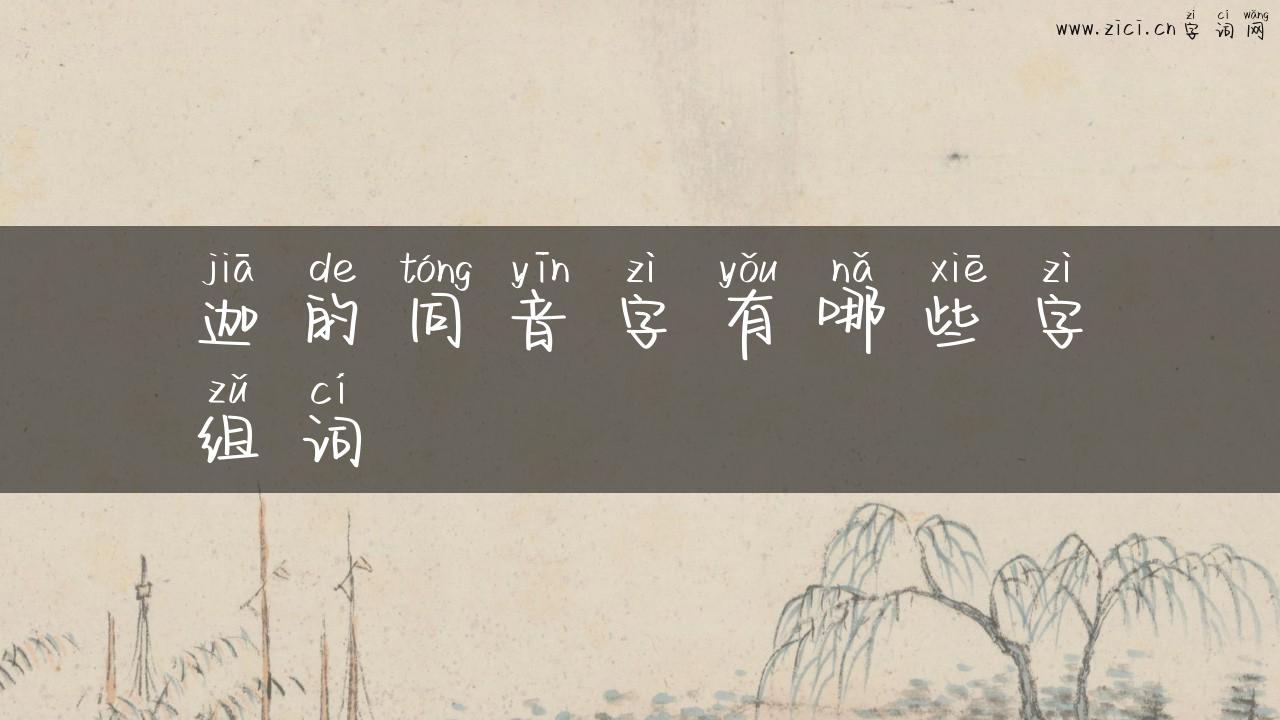 zì cí wǎng
www.zici.cn 字 词 网
jiā de tóng yīn zì yǒu nǎ xiē zì
迦 的 同 音 字 有 哪 些 字
zǔ cí
组 词